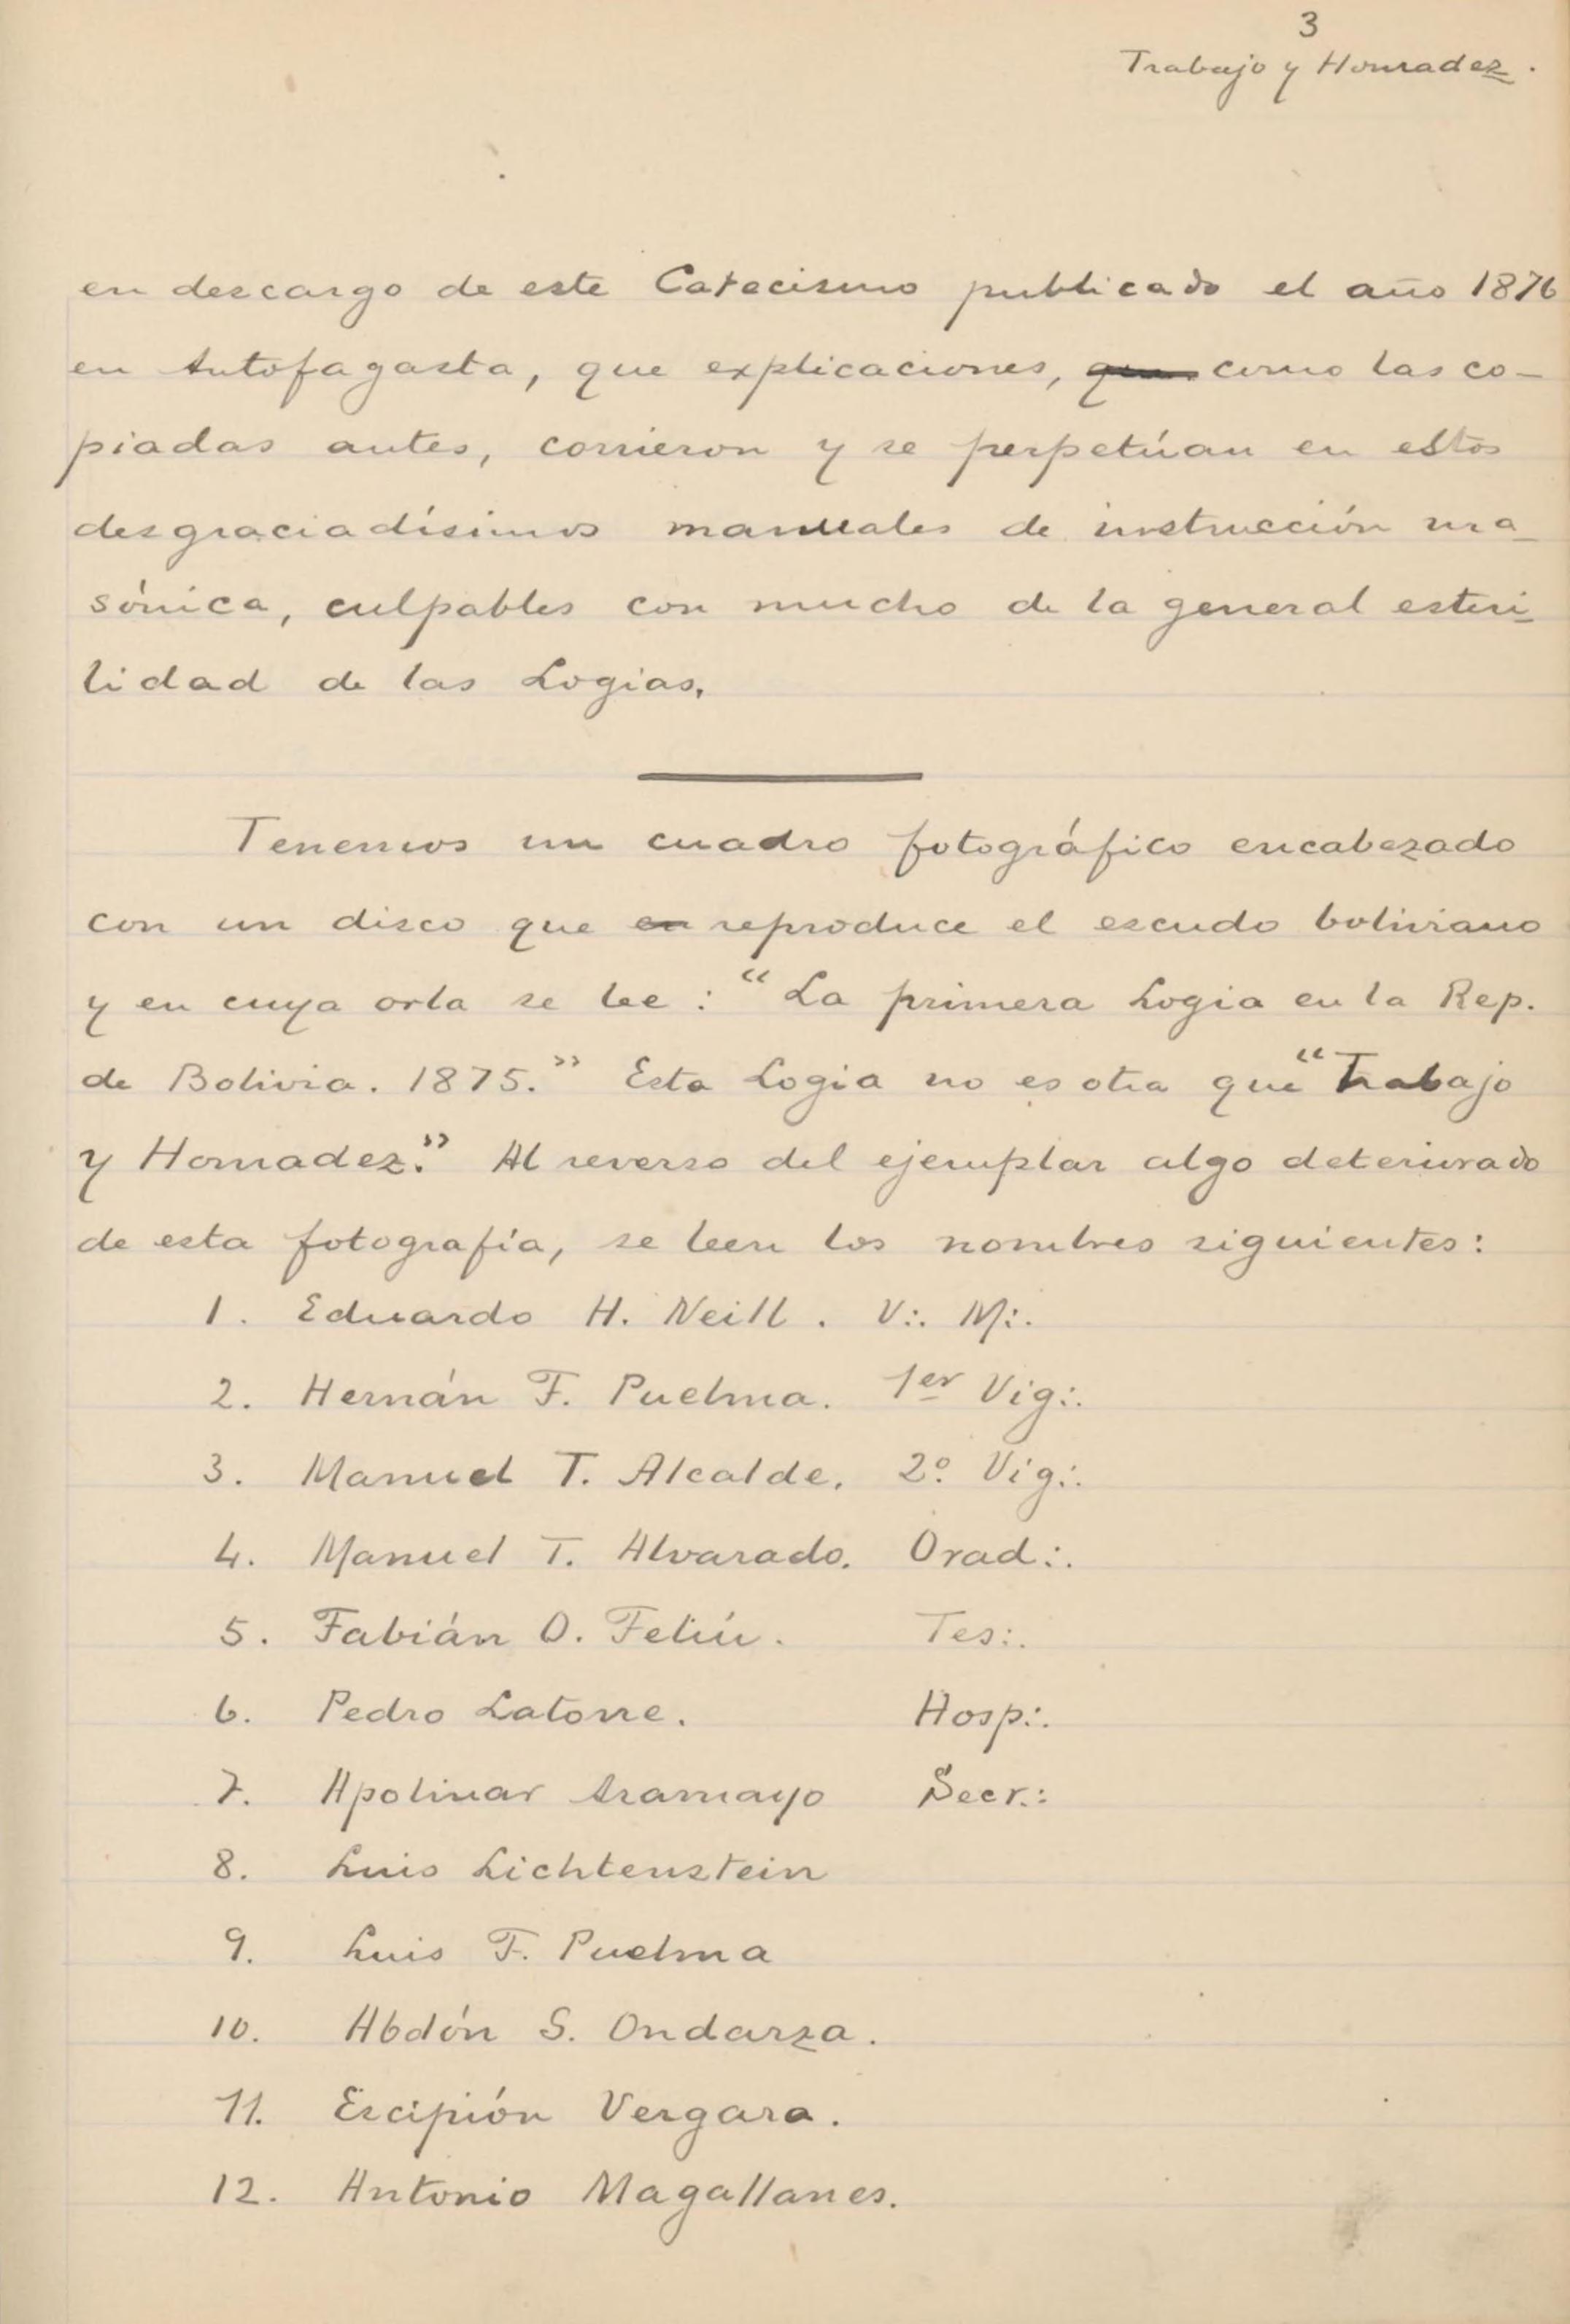 3
Trabajo y Honradez.
en descargo de este Catecismo publicado el año 1876
en Antofagasta, que explicaciones, como las co-
piadas antes, corrieron y se perpetúan en estos
desgraciadísimos manuales de instrucción ma-
sónica, culpables con mucho de la general esteri-
lidad de las Logias.
Tenemos un cuadro fotográfico encabezado
con un disco que en reproduce el escudo boliviano
y en cuya orla se lee: "La primera Logia en la Rep.
de Bolivia. 1875." Esta Logia no es otra que "Trabajo
y Honradez." Al reverso del ejemplar algo deteriorado
de esta fotografía, se leen los nombres siguientes:
1. Eduardo H. Neill. V∴ M∴
2. Hernán F. Puelma. 1er Vig∴
3. Manuel T. Alcalde. 2º Vig∴
4. Manuel T. Alvarado. Orad∴
5. Fabián O. Feliú. Tes∴
6. Pedro Latorre. Hosp∴
7. Apolinar Aramayo Secr∴
8. Luis Lichtenstein
9. Luis F. Puelma
10. Abdón S. Ondarza.
11. Escipión Vergara.
12. Antonio Magallanes.